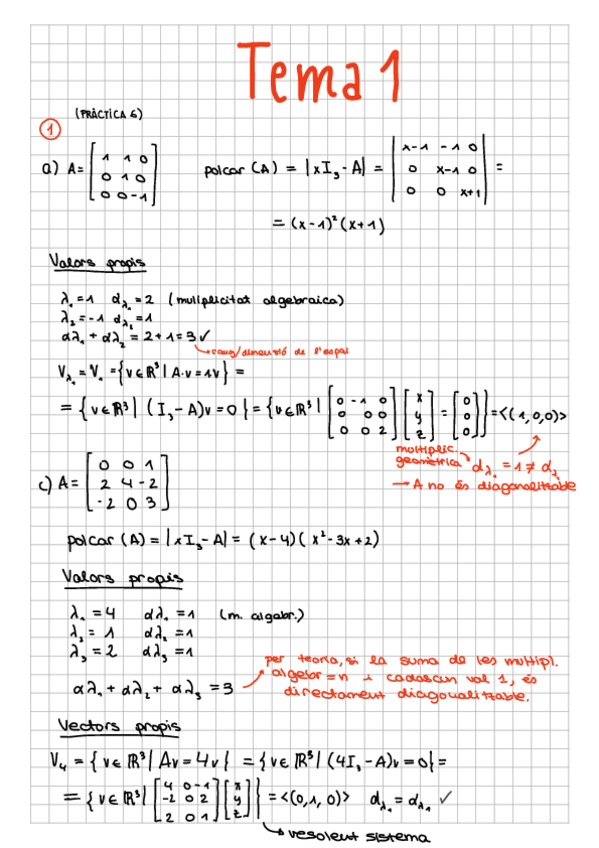 Tema 1
(PRÀCTICA 6)
①
a) A = [1 1 0; 0 1 0; 0 0 -1] polcar (A) = |xI₃ - A| = |x-1 -1 0; 0 x-1 0; 0 0 x+1| =
= (x-1)² (x+1)
Valors propis
λ₁ = 1 αλ₁ = 2 (muliplicitat algebraica)
λ₂ = -1 αλ₂ = 1
αλ₁ + αλ₂ = 2+1 = 3 ✓
→ rang/dimensió de l'espai
Vλ₁ = V₁ = {v∈ℝ³ | A·v = 1v} =
= {v∈ℝ³ | (I₃-A)v = 0} = {v∈ℝ³ | [0 -1 0; 0 0 0; 0 0 2] [x; y; z] = [0; 0; 0]} = <(1,0,0)>
multiplic. geomètrica dλ₁ = 1 ≠ αλ₁
→ A no és diagonalitzable
c) A = [0 0 1; 2 4 -2; -2 0 3]
polcar (A) = |xI₃ - A| = (x-4)(x²-3x+2)
Valors propis
λ₁ = 4 αλ₁ = 1 (m. algebr.)
λ₂ = 1 αλ₂ = 1
λ₃ = 2 αλ₃ = 1
αλ₁ + αλ₂ + αλ₃ = 3
per teoria, si la suma de les multipl.
algebr = n i cadascun val 1, és
directament diagonalitzable.
Vectors propis
V₄ = {v∈ℝ³ | Av = 4v} = {v∈ℝ³ | (4I₃-A)v = 0} =
= {v∈ℝ³ | [4 0 -1; -2 0 2; 2 0 1] [x; y; z]} = <(0,1,0)> dλ₁ = αλ₁ ✓
→ resolent sistema